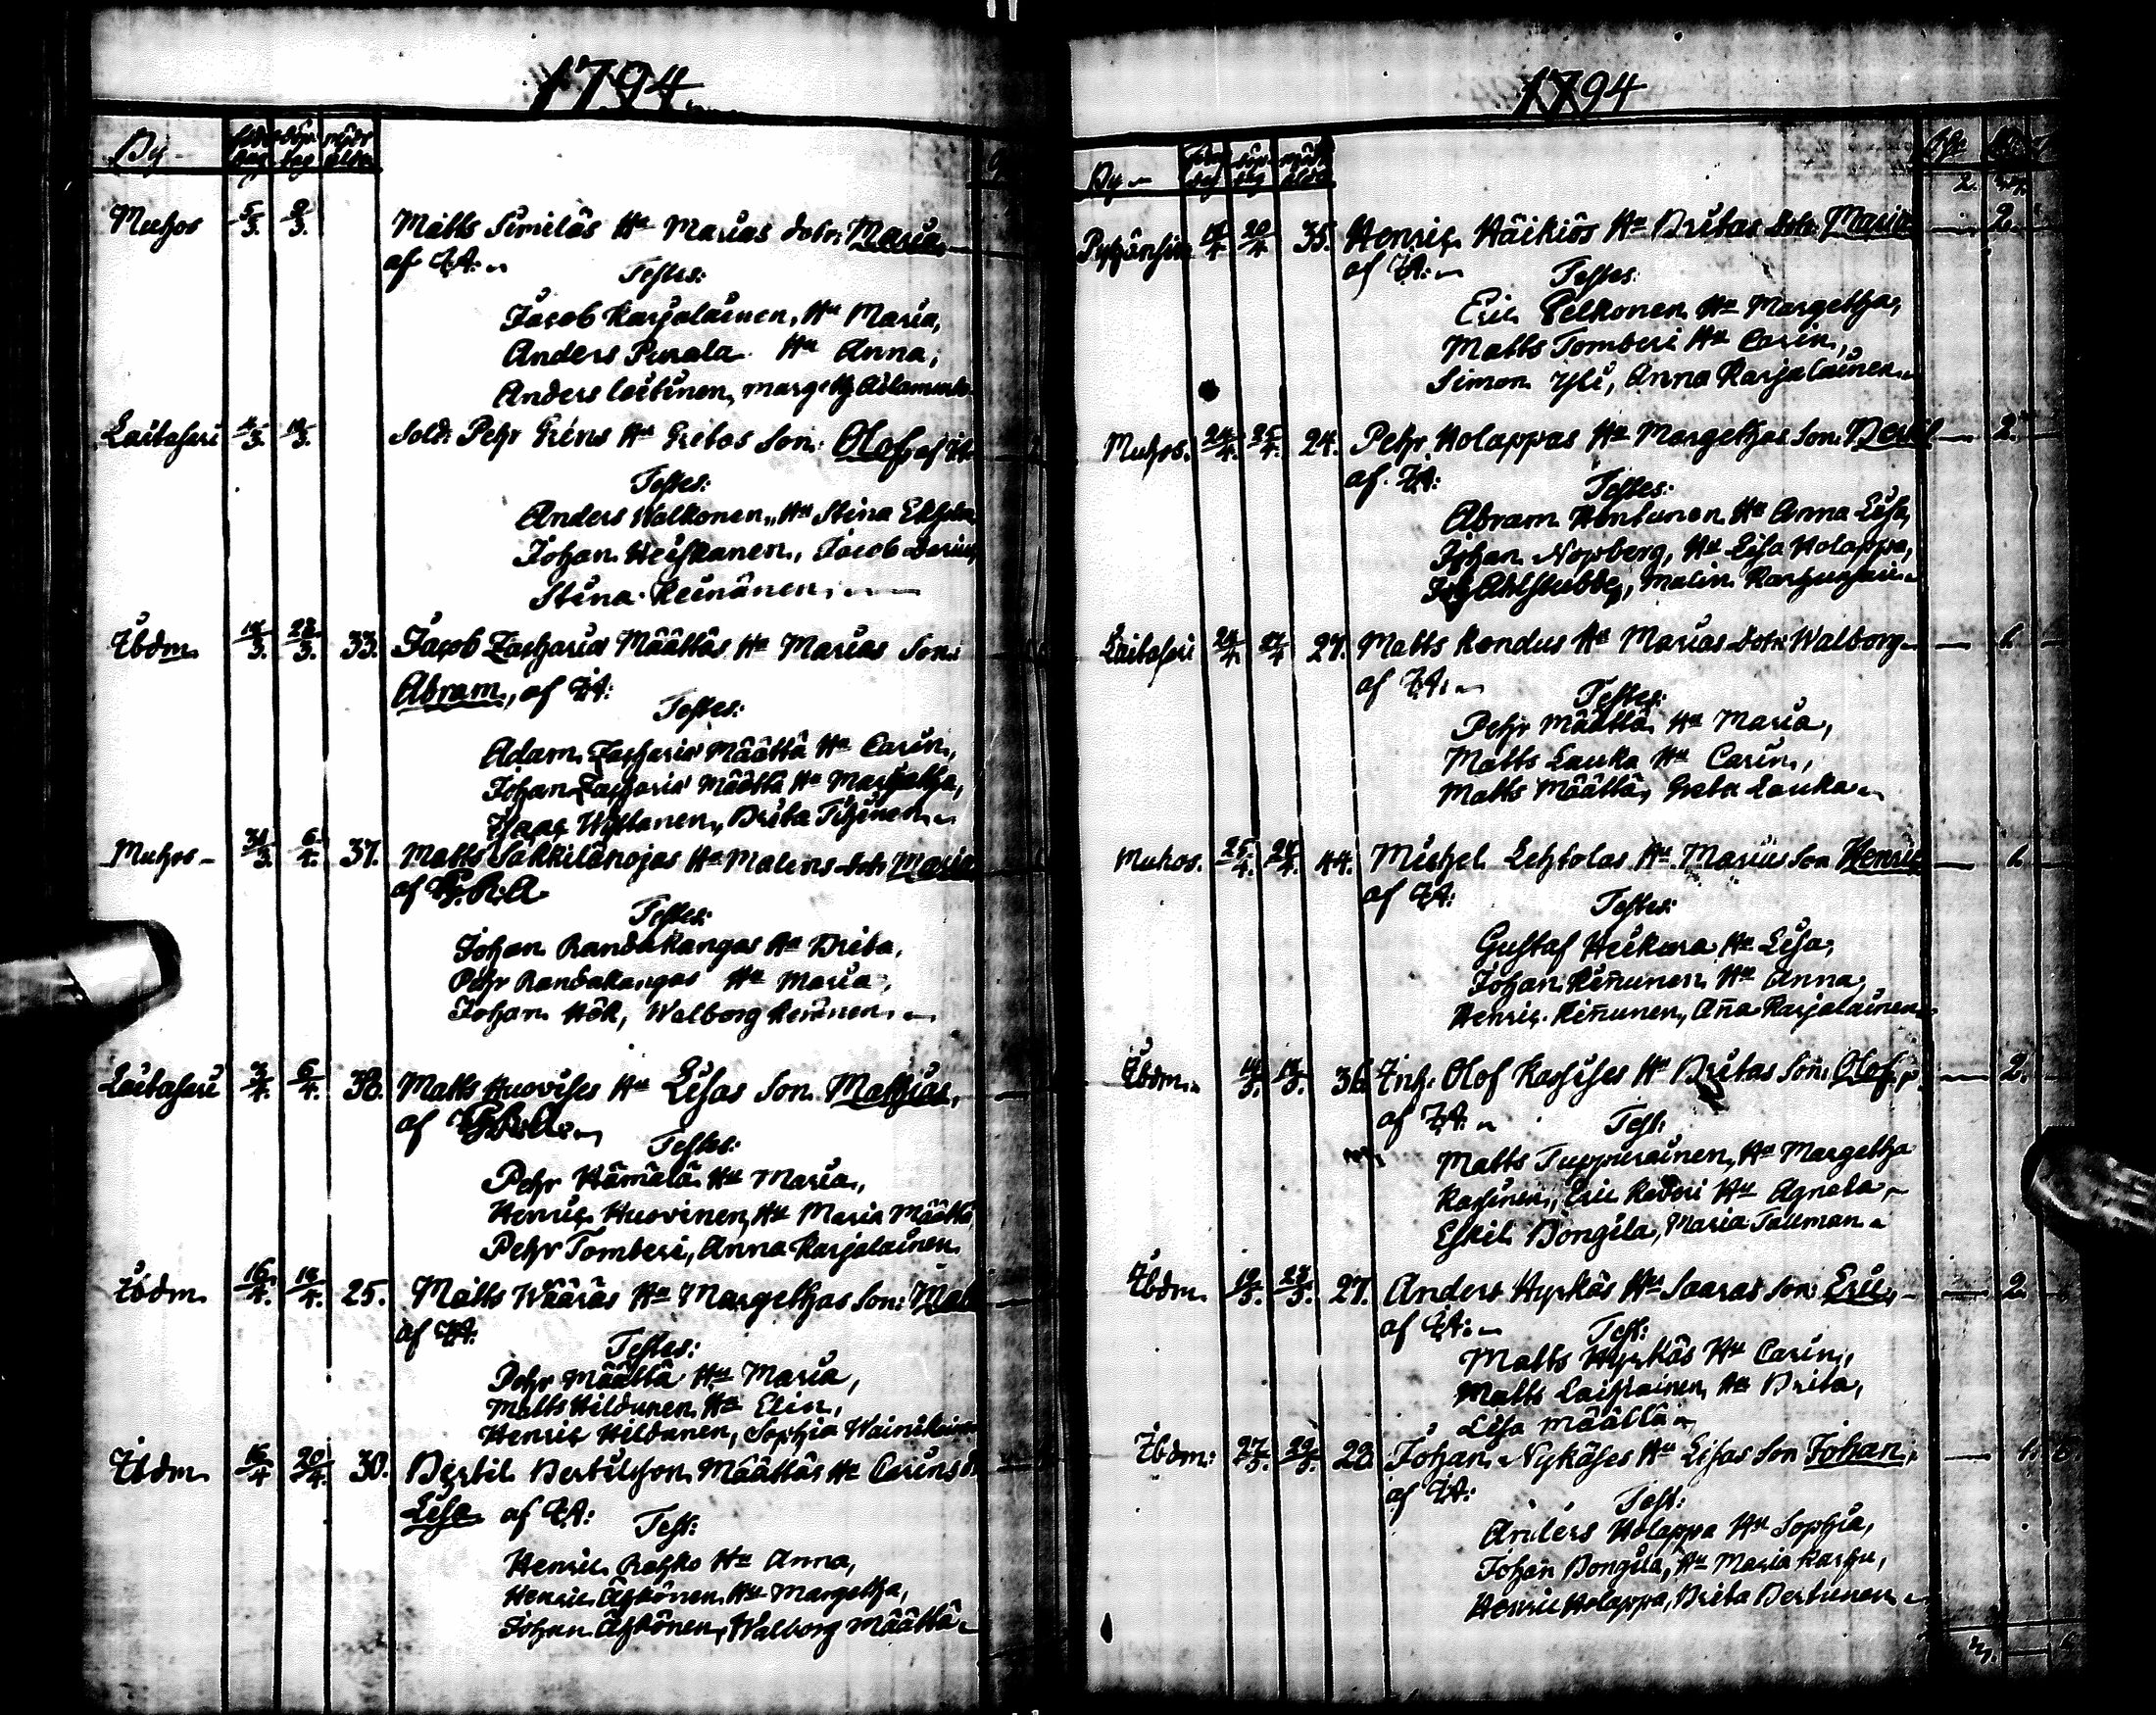 1794
By
Muhos 5/3. 9/3. Matts Similäs Hu Marias dotr: Maria
af I.A:
Testes:
Jacob Karjalainen, Hu Maria,
Anders Purala Hu Anna,
Anders Leinonen, Margeth
Laitasari 3. 3. Sold: Pehr Grens Hu Gretas Son: Olof, af
Testes:
Anders Walkonen, Hu Stina
Johan Heiskanen, Jacob
Stina Keinänen,
Ibdm 19/3. 23/3. 33. Jacob Zacharias Määttäs Hu Marias Son:
Abram, af I.A:
Testes:
Adam Zacharias Määttä Hu Carin,
Johan Zacharias Määttä Hu Margetha,
Isaac Brita Tihinen
Muhos 31/3. 6/4. 37. Matts Sakkilänojas Hu Malins dotr Maria
af
Testes:
Johan Randakangas Hu Brita,
Pehr Randakangas Hu Maria,
Johan Hök, Walborg Keinänen,
Laitasari 3/4. 6/4. 38. Matts Huovises Hu Lisas Son Mathias,
af
Testes:
Pehr Hämälä Hu Maria,
Henric Huovinen, Hu Maria Määttä
Pehr Tomberi, Anna Karjalainen
Ibdm 16/4. 18/4. 25. Matts Wääräs Hu Margethas Son:
af I.A:
Testes:
Pehr Määttä Hu Maria,
Matts Hildunen Hu Elin,
Henric Hildunen, Sophia
Ibdm 16/4 20/4. 30. Bertil Bertilsson Määttäs Hu Carins
Lisa af I.A:
Test:
Henric Rahko Hu Anna,
Henric Äyhönen Hu Margetha,
Johan Äyhönen, Walborg Määttä
1794
By
2.
4. 20/4 35. Henric Häikiös Hu Britas dotr: Maria 2.
af I.A:
Testes:
Eric Pelkonen Hu Margetha,
Matts Tomberi Hu Carin,
Simon Yli, Anna Karjalainen
Muhos. 24/4. 25/4. 24. Pehr Holappas Hu Margethas Son: Bertil 2.
af I.A:
Testes:
Abram Hentunen Hu Anna Lisa,
Johan Norberg, Hu Lisa Holappa,
Joh Ahlstubbe, Malin
Laitasari 24/4. 27/4 27. Matts Kondus Hu Marias dotr: Walborg
af I.A:
Testes:
Pehr Määttä Hu Maria,
Matts Lauka Hu Carin,
Matts Määttä, Greta Lauka
Muhos. 25/4. 27/4. 44. Michel Lehtolas Hu Marias Son Henric
af I.A:
Testes:
Gustaf Heikura Hu Lisa,
Johan Kiñunen Hu Anna,
Henric Kiñunen, Aña Karjalainen
Ibdm 5. 5. 36. Inh: Olof Kassises Hu Britas Son: Olof, 2.
af I.A:
Test:
Matts Tuppurainen, Hu Margetha
Kassinen, Eric Hu Agneta,
Eskil Bongila, Maria Tallman
Ibdm. 5. 5. 27. Anders Hyrkäs Hu Saaras Son: Eric, 2.
af I.A:
Test:
Matts Hyrkäs Hu Carin,
Matts Laitiainen, Hu Brita,
Lisa Määttä
Ibdm: 27/5. 29/5. 28. Johan Nykäses Hu Lisas Son Johan,
af I.A:
Test:
Anders Holappa Hu Sophia,
Johan Bongila, Hu Maria Karhu,
Henric Holappa, Brita Bertunen